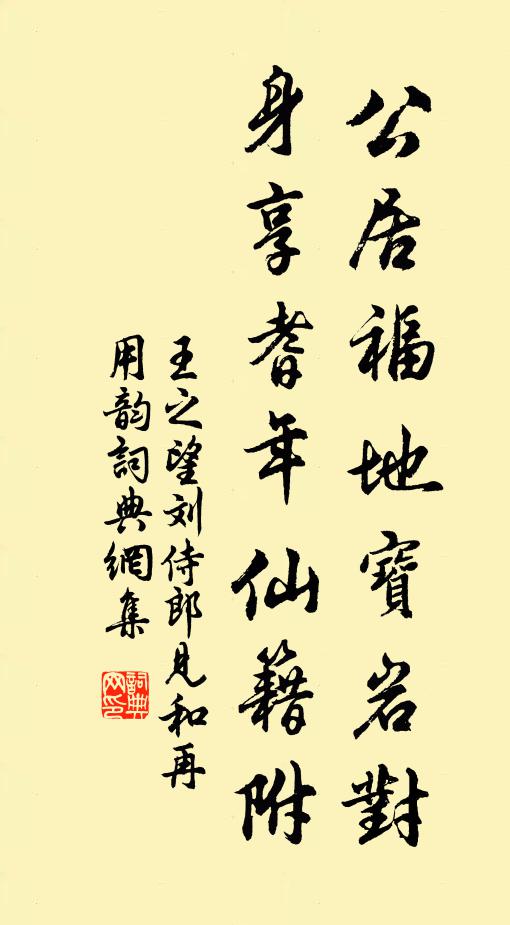 公居福地寶岩對
身享耆年仙籍附
王之望刘侍郎見和再
用韵詞典網集
詞典网印